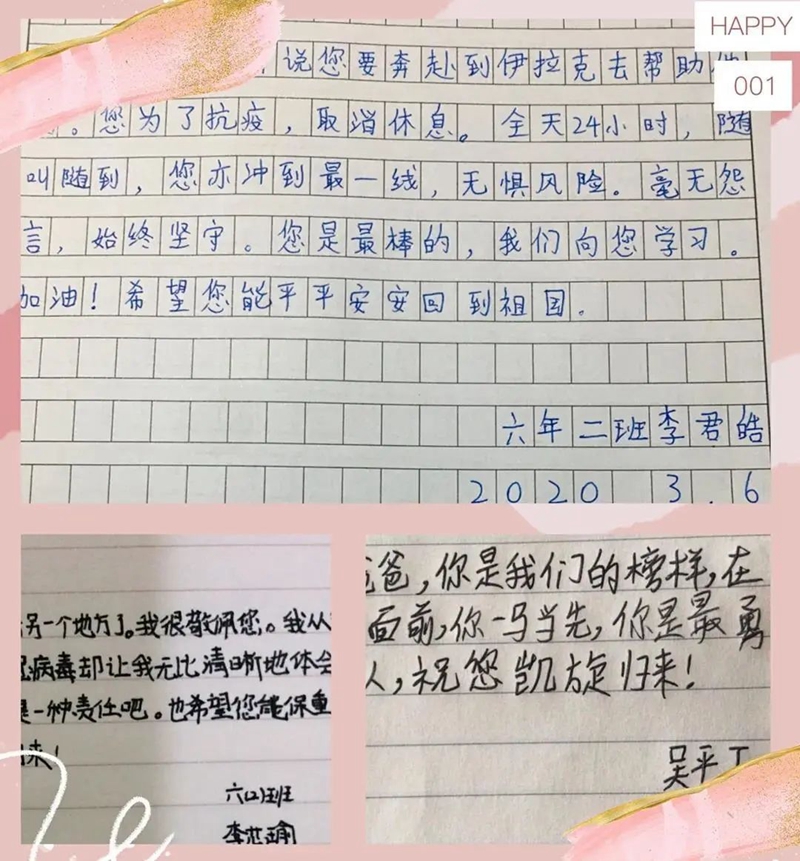 HAPPY
001
说您要奔赴到伊拉克去帮助他
。您为了抗疫，取消休息。全天24小时，随
叫随到，您亦冲到最一线，无惧风险。毫无怨
言，始终坚守。您是最棒的，我们向您学习。
加油！希望您能平平安安回到祖国。
六年二班李君皓
2020 3.6
另一个地方了。我很敬佩您。我从
病毒却让我无比清晰地体会
是一种责任吧。也希望您能保重
来！
六口班
爸，你是我们的榜样，在
面前，你一马当先，你是最勇
人，祝您凯旋归来！
吴平